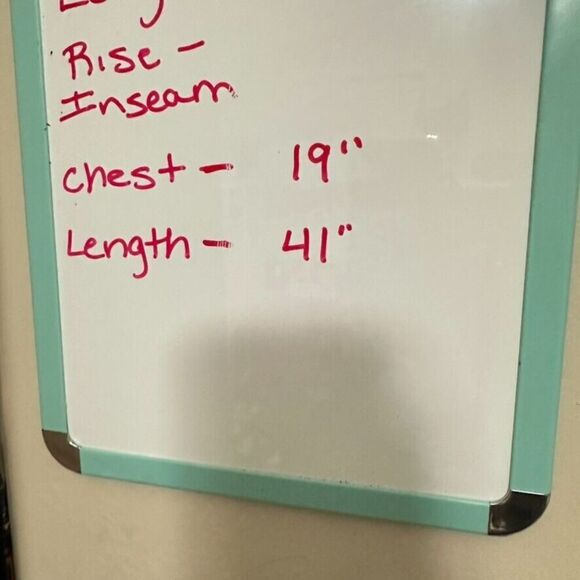 Rise -
Inseam
Chest - 19"
Length - 41"